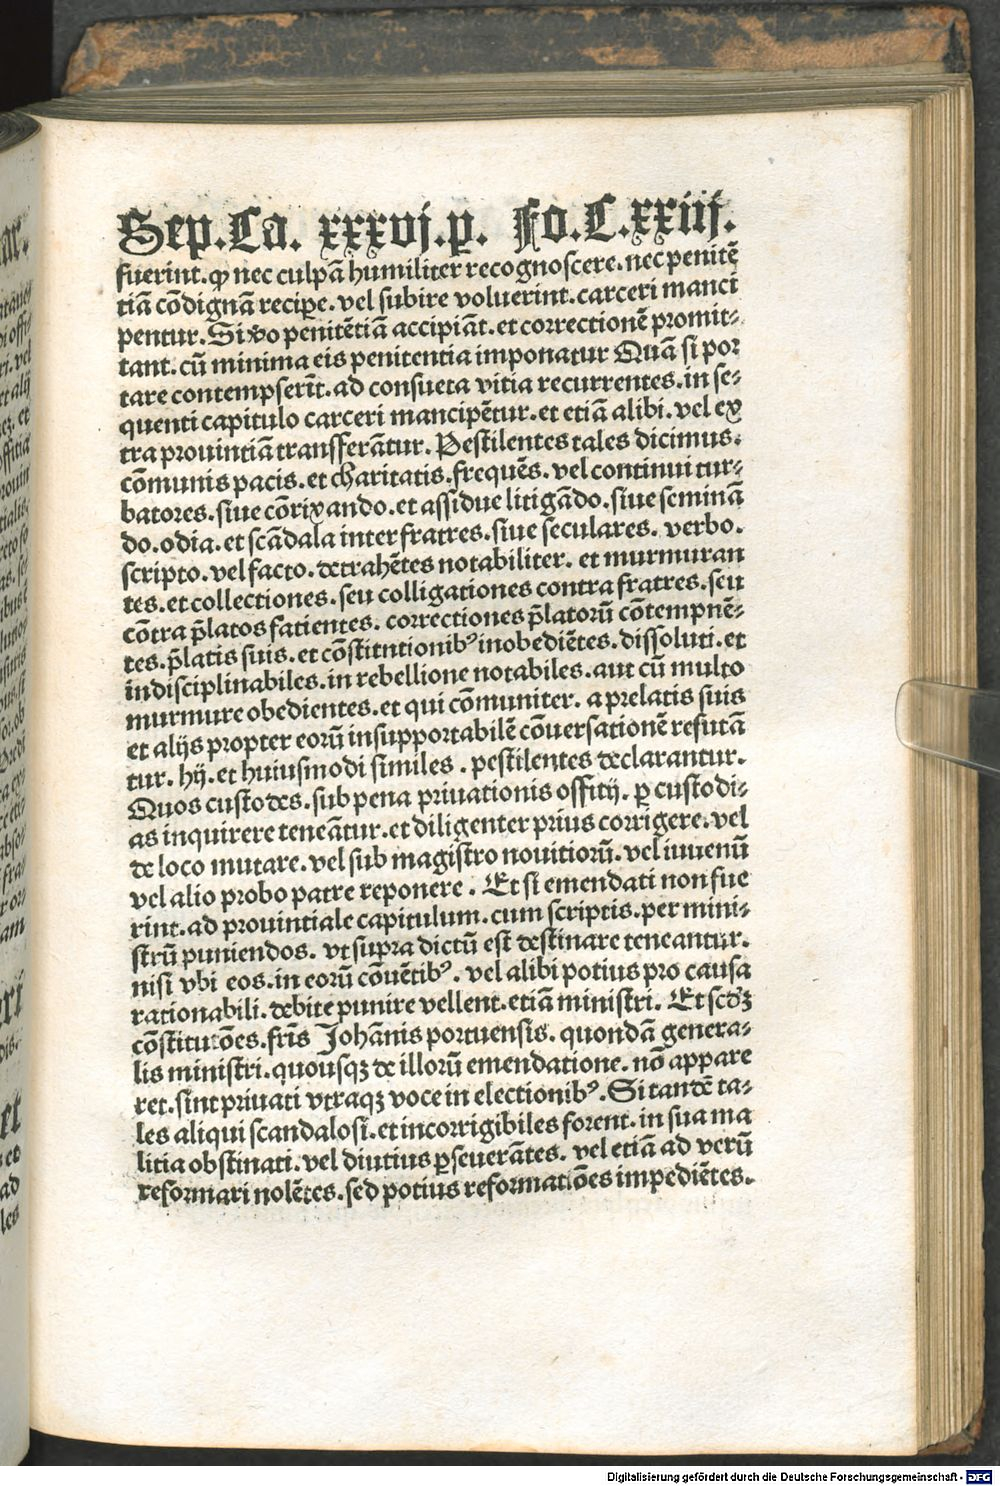 Sep.Ca. xxxvj.p. Fo.C.xxiij.
fuerint. ꝙ nec culpā humiliter recognoscere. nec penitē
tiā cōdignā recipe. vel subire voluerint. carceri manci
pentur. Si ꝟo penitētiā accipiāt. et correctionē promit⸗
tant. cū minima eis penitentia imponatur Quā si por
tare contempserīt. ad consueta vitia recurrentes. in se⸗
quenti capitulo carceri mancipētur. et etiā alibi. vel ex
tra prouintiā transferātur. Pestilentes tales dicimus.
cōmunis pacis. et charitatis. frequēs. vel continui tur⸗
batores. siue cōrixando. et assidue litigādo. siue seminā
do. odia. et scādala inter fratres. siue seculares. verbo.
scripto. vel facto. detrahētes notabiliter. et murmuran
tes. et collectiones. seu colligationes contra fratres. seu
cōtra p̄latos fatientes. correctiones p̄latorū cōtempnē⸗
tes. p̄latis suis. et cōstitntionibꝰ inobediētes. dissoluti. et
indisciplinabiles. in rebellione notabiles. aut cū multo
murmure obedientes. et qui cōmuniter. a prelatis suis
et alijs propter eorū insupportabilē cōuersationē refutā
tur. hij. et huiusmodi similes. pestilentes declarantur.
Quos custodes. sub pena priuationis offitij. ꝑ custodi⸗
as inquirere teneātur. et diligenter prius corrigere. vel
de loco mutare. vel sub magistro nouitiorū. vel iuuenū
vel alio probo patre reponere. Et si emendati non fue
rint. ad prouintiale capitulum. cum scriptis. per mini⸗
strū puniendos. vt supra dictū est destinare teneantur.
nisi vbi eos. in eorū cōuētibꝰ. vel alibi potius pro causa
rationabili. debite punire vellent. etiā ministri. Et scd'ꝫ
cōstitutōes. fr̄is Johānis portuensis. quondā genera⸗
lis ministri. quousqꝫ de illorū emendatione. nō appare
ret. sint priuati vtraqꝫ voce in electionibꝰ. Si tandē ta⸗
les aliqui scandalosi. et incorrigibiles forent. in sua ma
litia obstinati. vel diutius ꝑseuerātes. vel etiā ad verū
reformari nolētes. sed potius reformatiōes impediētes.
Digitalisierung gefördert durch die Deutsche Forschungsgemeinschaft - DFG